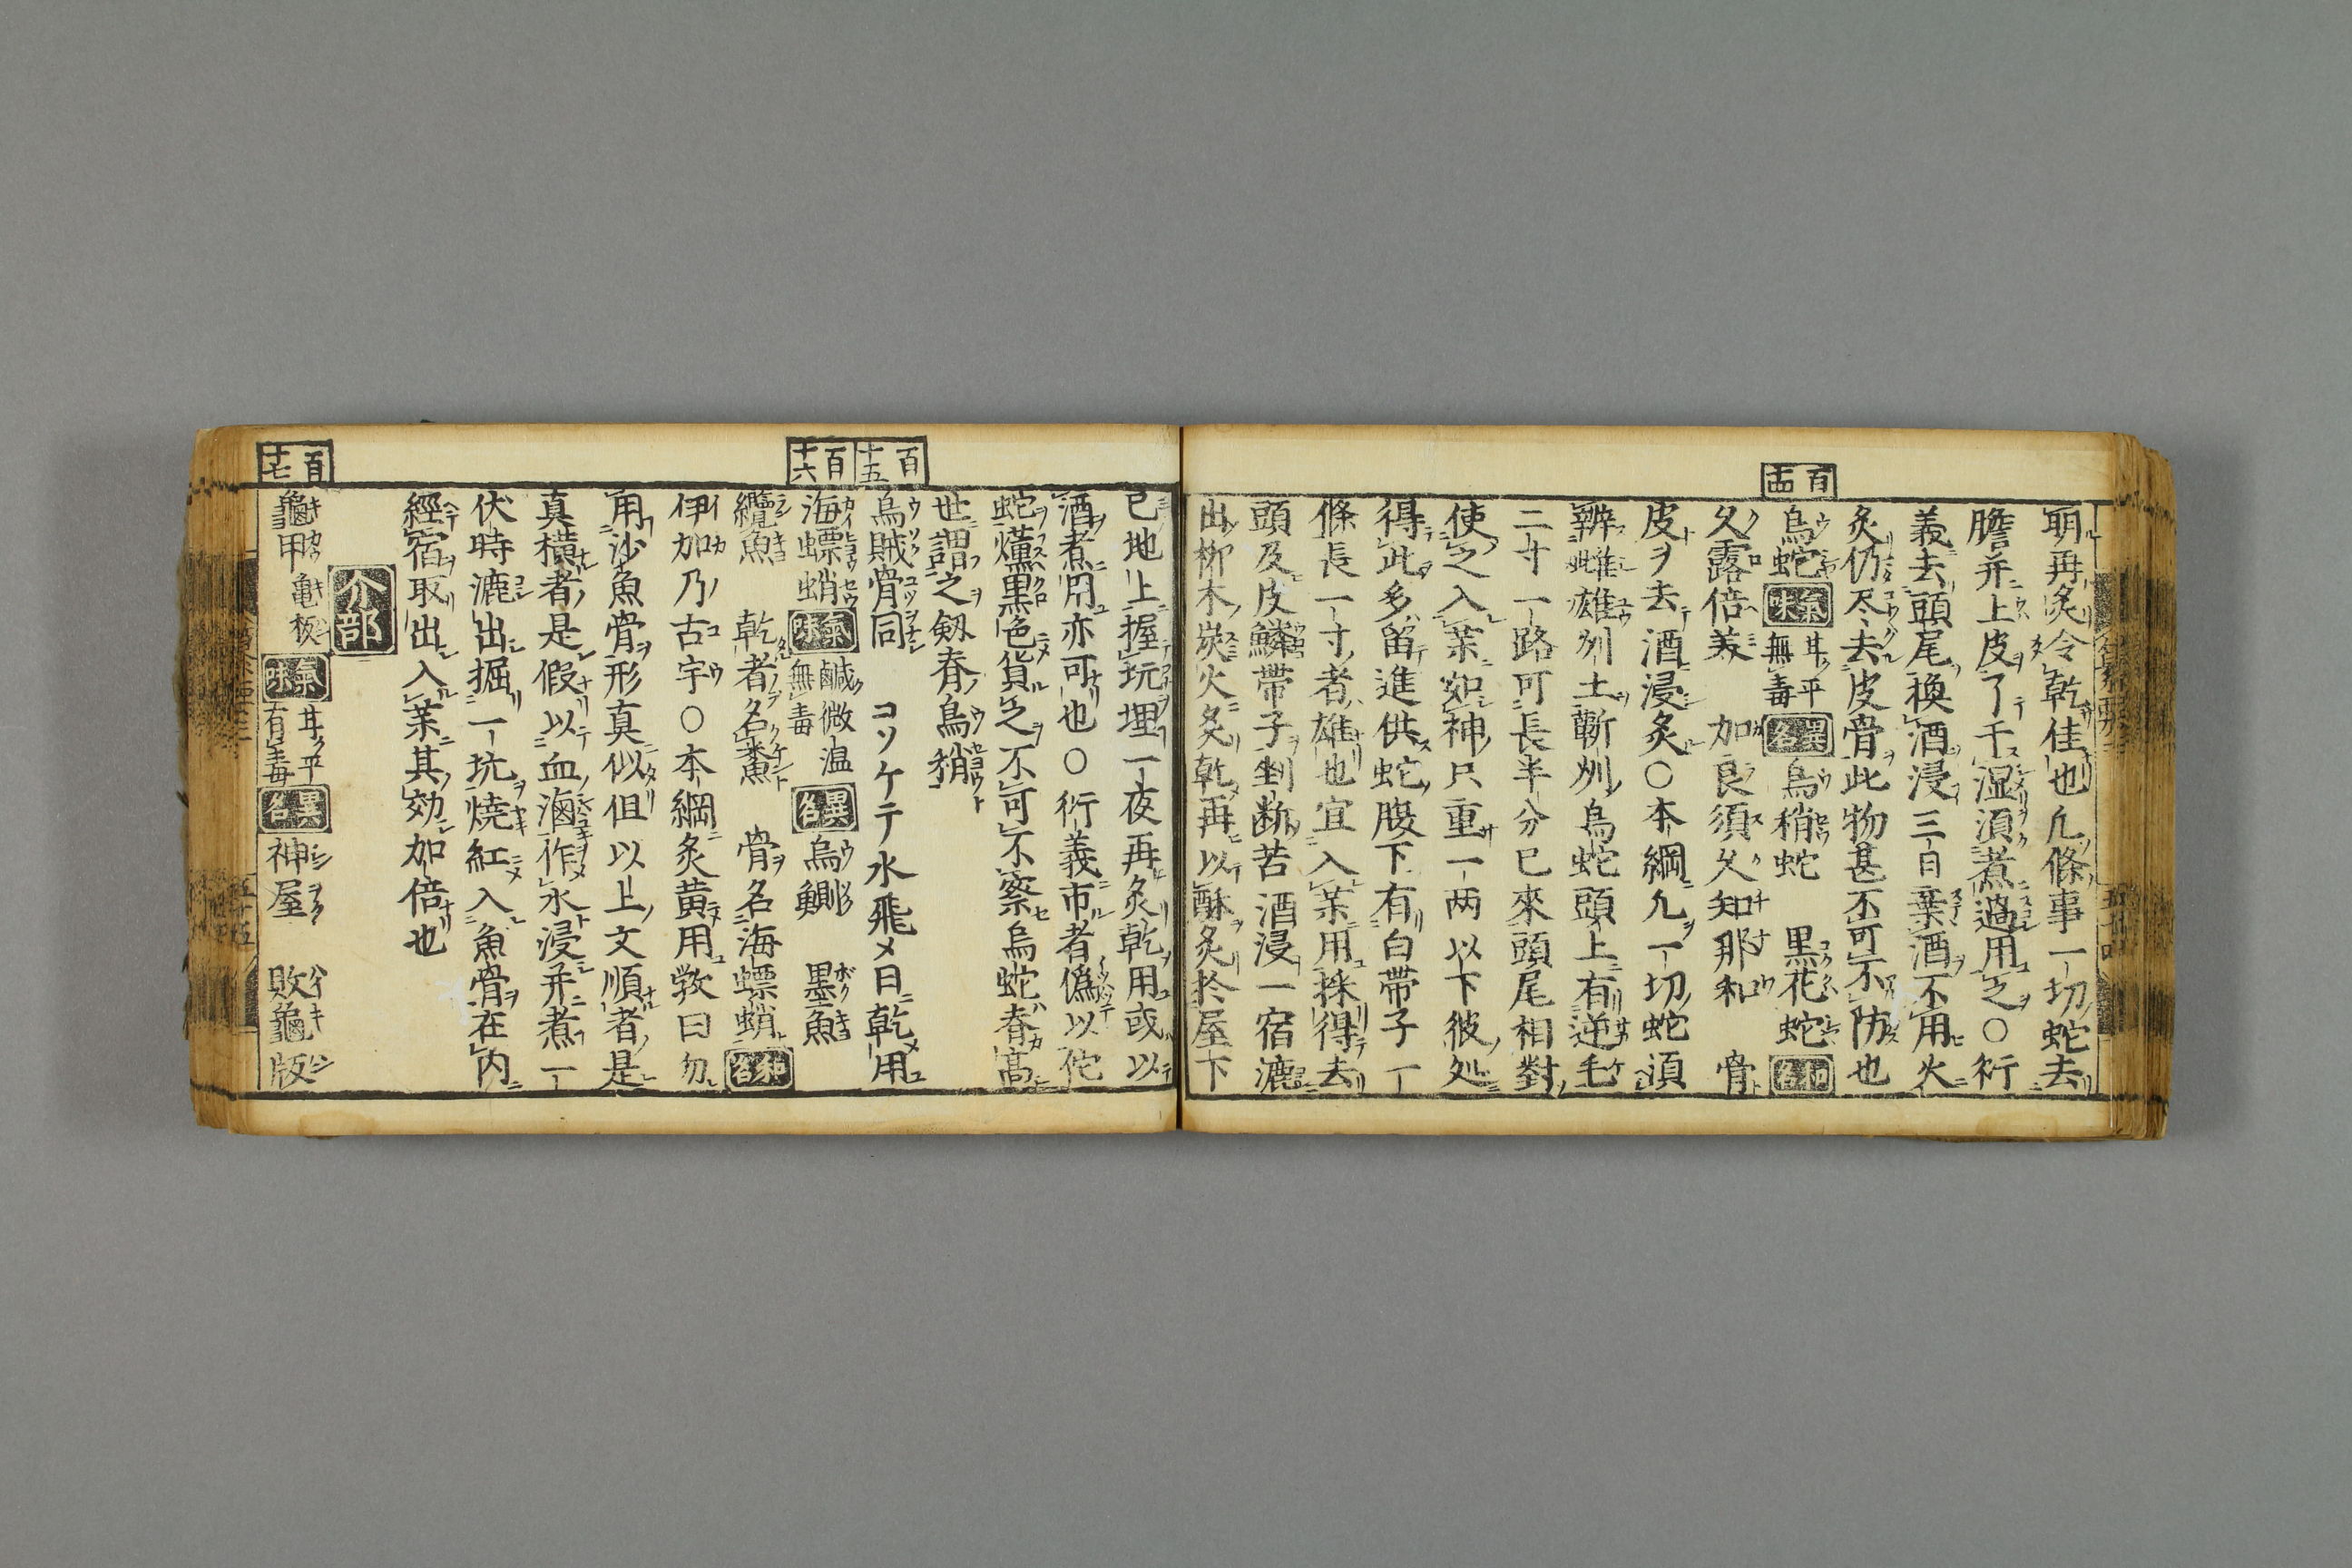 百十四
明再炙令乾佳也凡條事一切蛇去
膽并上皮了干湿湏煮過用之〇衍
義去頭尾換酒浸三日棄酒不用火
炙仍尽去皮骨此物甚不可不防也
烏蛇 氣味 甘平無毒 異名 烏稍蛇 黒花蛇 和名
久露倍美 加良須久知那和 骨
皮ヲ去酒浸炙〇本綱凡一切蛇湏
辨雌雄州土蘄州烏蛇頭上有逆毛
二寸一路可長半分已來頭尾相對
使之入薬如神只重一两以下彼処
得此多留進供蛇腹下有白帯子一
條長一寸者雄也宜入薬用採得去
頭及皮鱗帯子剉断苦酒浸一宿漉
出柳木炭火炙乾再以酥炙於屋下
百十五
百十六
百十七
已地上掘坑埋一夜再炙乾用或以
酒煮用亦可也〇衍義市者偽以佗
蛇燻黒色貨之不可不察烏蛇脊高
世謂之剱脊烏稍
烏賊骨同 コソケテ水飛メ日乾用
海螵蛸 氣味 鹹微温無毒 異名 烏鰂 墨魚
纜魚 乾者名鯗 骨名海螵蛸 和名
伊加乃古宇〇本綱炙黄用斅曰勿
用沙魚骨形真似但以上文順者是
真横者是假以血滷作水浸并煮一
伏時漉出掘一坑燒紅入魚骨在内
經宿取出入薬其効加倍也
介部
龜甲 亀板 氣味 甘平有毒 異名 神屋 敗龜版